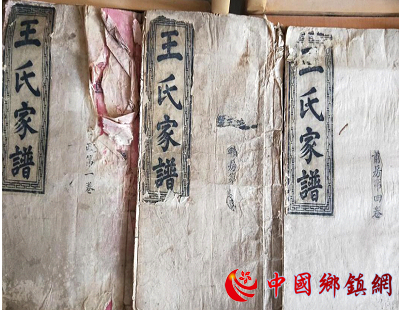 王氏家譜
第一卷
王氏家譜
王氏家譜
第四卷
中國鄉鎮網